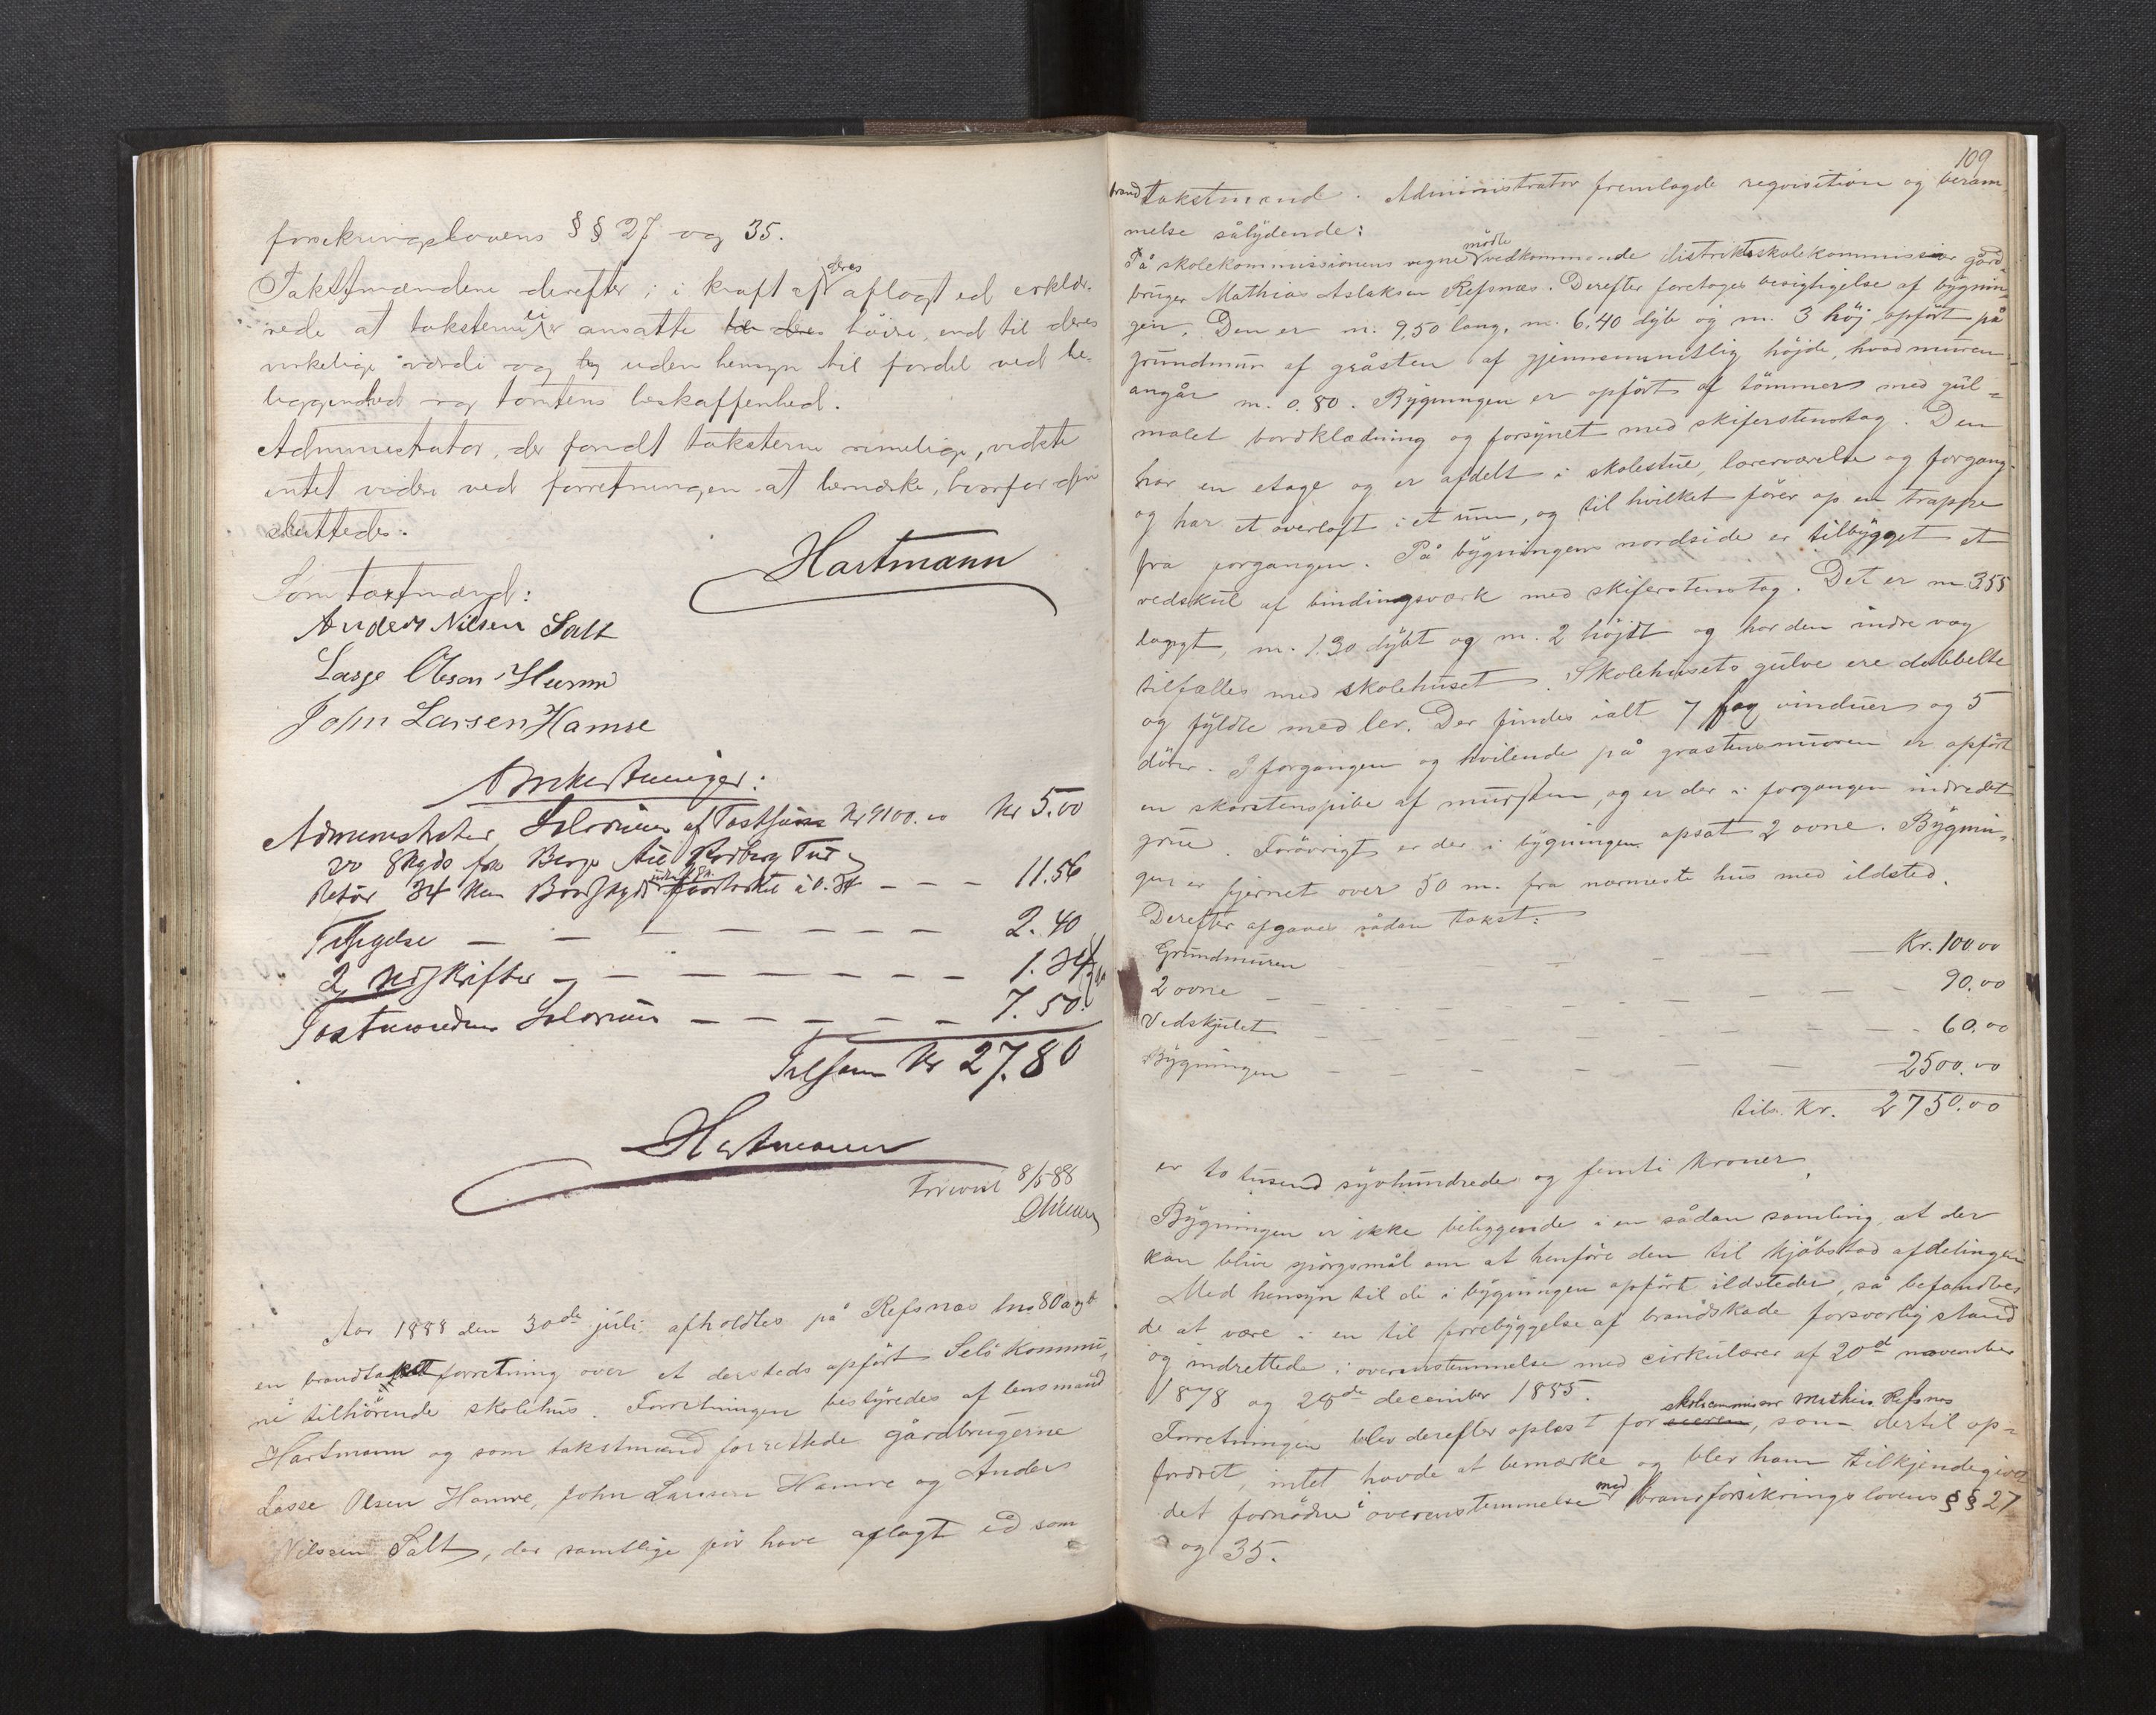 forsikringslovens §§ 27 og 35.
Takstmændene derefter i kraft af deres aflagt ed erklæ-
rede at taksterne er ansatte høire, end til deres
virkelige værdi og uden hensyn til fordel ved be-
liggenhed og tomtens beskaffenhed.
Administrator, der fandt taksterne rimelige, vidste
intet videre ved forretningen at bemærke, hvorfor den
sluttedes.
Hartmann
Som taxtmænd:
Anders Nilsen Salt
Lasse Olsen Hamre
John Larsen Hamre
Omkostninger:
Administrator Salarium af Kr 9100.00 Kr 5.00
do Skyds fra Berge til Rodberg Tur og
Retur 34 Km Baadskyds à 0.34 — — — 11.56
— — — — — — — 2.40
2 Udskrifter — — — — — — 1.34
Salarium — — — — — — 7.50
Tilsam Kr 27.80
Hartmann
8/5 88
Aar 1888 den 30de juli afholdtes på Refsnæs bno 80 a og b
en brandtakstforretning over et dersteds opført Selö kommu-
ne tilhörende skolehus. Forretningen bestyredes af lensmand
Hartmann og som takstmænd forrettede gårdbrugerne
Lasse Olsen Hamre, John Larsen Hamre og Anders
Nilssen Salt, der samtlige för have aflagt ed som
109
brandtakstmænd. Administrator fremlagde reqvisition og beram-
melse sålydende:
På skolekommissionens vegne mødte vedkommende distriktsskolekommissær gård-
bruger Mathias Aslaksen Refsnæs. Derefter foretoges besigtigelse af bygnin-
gen. Den er m. 9,50 lang, m. 6,40 dyb og m. 3 höj opfört på
grundmur af gråsten af gjennemsnitlig höjde, hvad muren
angår m. 0.80. Bygningen er opfört af tömmer med gul-
malet bordklædning og forsynet med skiferstenstag. Den
har en etage og er afdelt i skolestue, lærerværelse og forgang
og har et overloft i et rum, og til hvilket förer op en trappe
fra forgangen. På bygningens nordside er tilbygget et
vedskul af bindingsværk med skiferstenstag. Det er m. 3.55
langt, m. 1.30 dybt og m. 2 höjdt og har den indre væg
tilfælles med skolehuset. Skolehusets gulve ere dobbelte
og fyldte med ler. Der findes ialt 7 fag vinduer og 5
dörer. I forgangen og hvilende på gråstensmuren er opfört
en skorstenspibe af mursten, og er der i forgangen indredet
grue. Forövrigt er der i bygningen opsat 2 ovne. Bygnin-
gen er fjernet over 50 m. fra nærmeste hus med ildsted.
Derefter afgaves sådan takst:
Grundmuren — — — Kr. 100.00
2 ovne — — — 90.00
Vedskjulet — — — 60.00
Bygningen — — — 2500.00
tils. Kr. 2750.00
er to tusend syvhundrede og femti kroner.
Bygningen er ikke beliggende i en sådan samling, at der
kan blive spörgsmål om at henföre den til kjöbstad afdelingen
Med hensyn til de i bygningen opfört ildsteder, så befandtes
de at være i en til forebyggelse af brandskade forsvarlig stand
og indrettede i overensstemmelse med cirkulærer af 20de november
1878 og 28de december 1885.
Forretningen blev derefter oplæst for skolekommissær Mathias Refsnæs, som dertil op-
fordret, intet havde at bemærke og blev ham tilkjendegivet
det fornödne i overensstemmelse med brandforsikringslovens §§ 27
og 35.